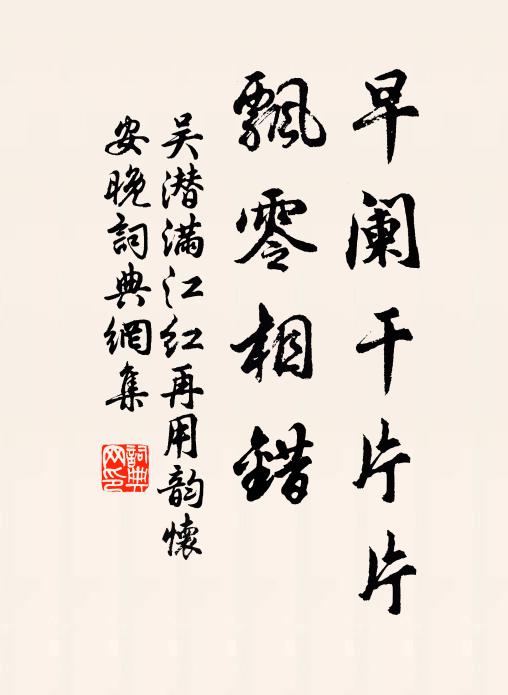 早阑干片片
飘零相错
吴潜满江红再用韵怀
安晚詞典網集
詞典网印